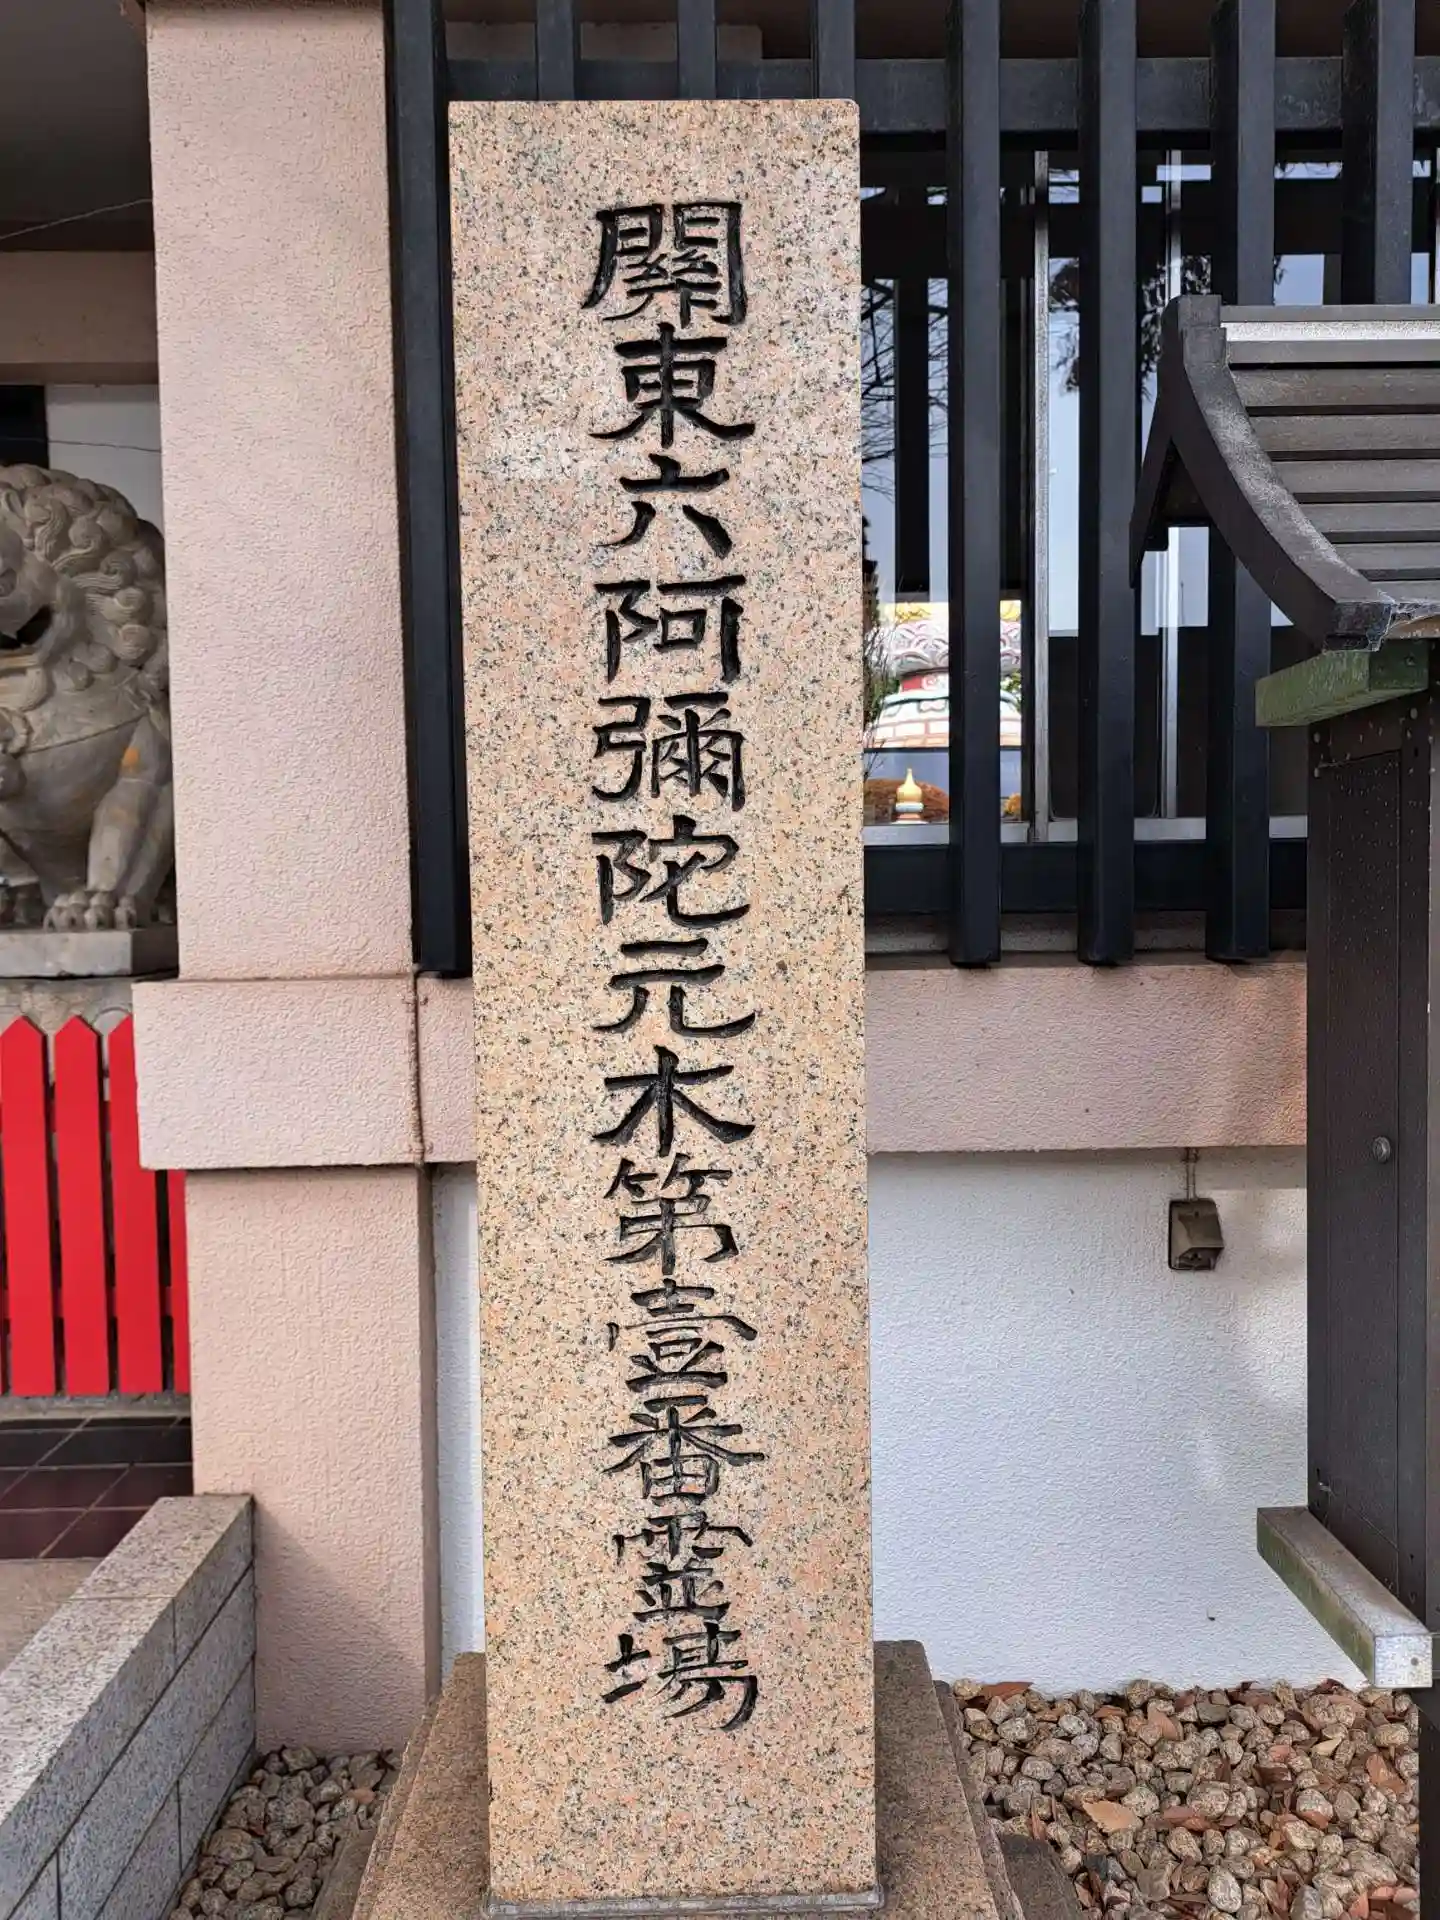 關東六阿彌陀元木第壹番霊場